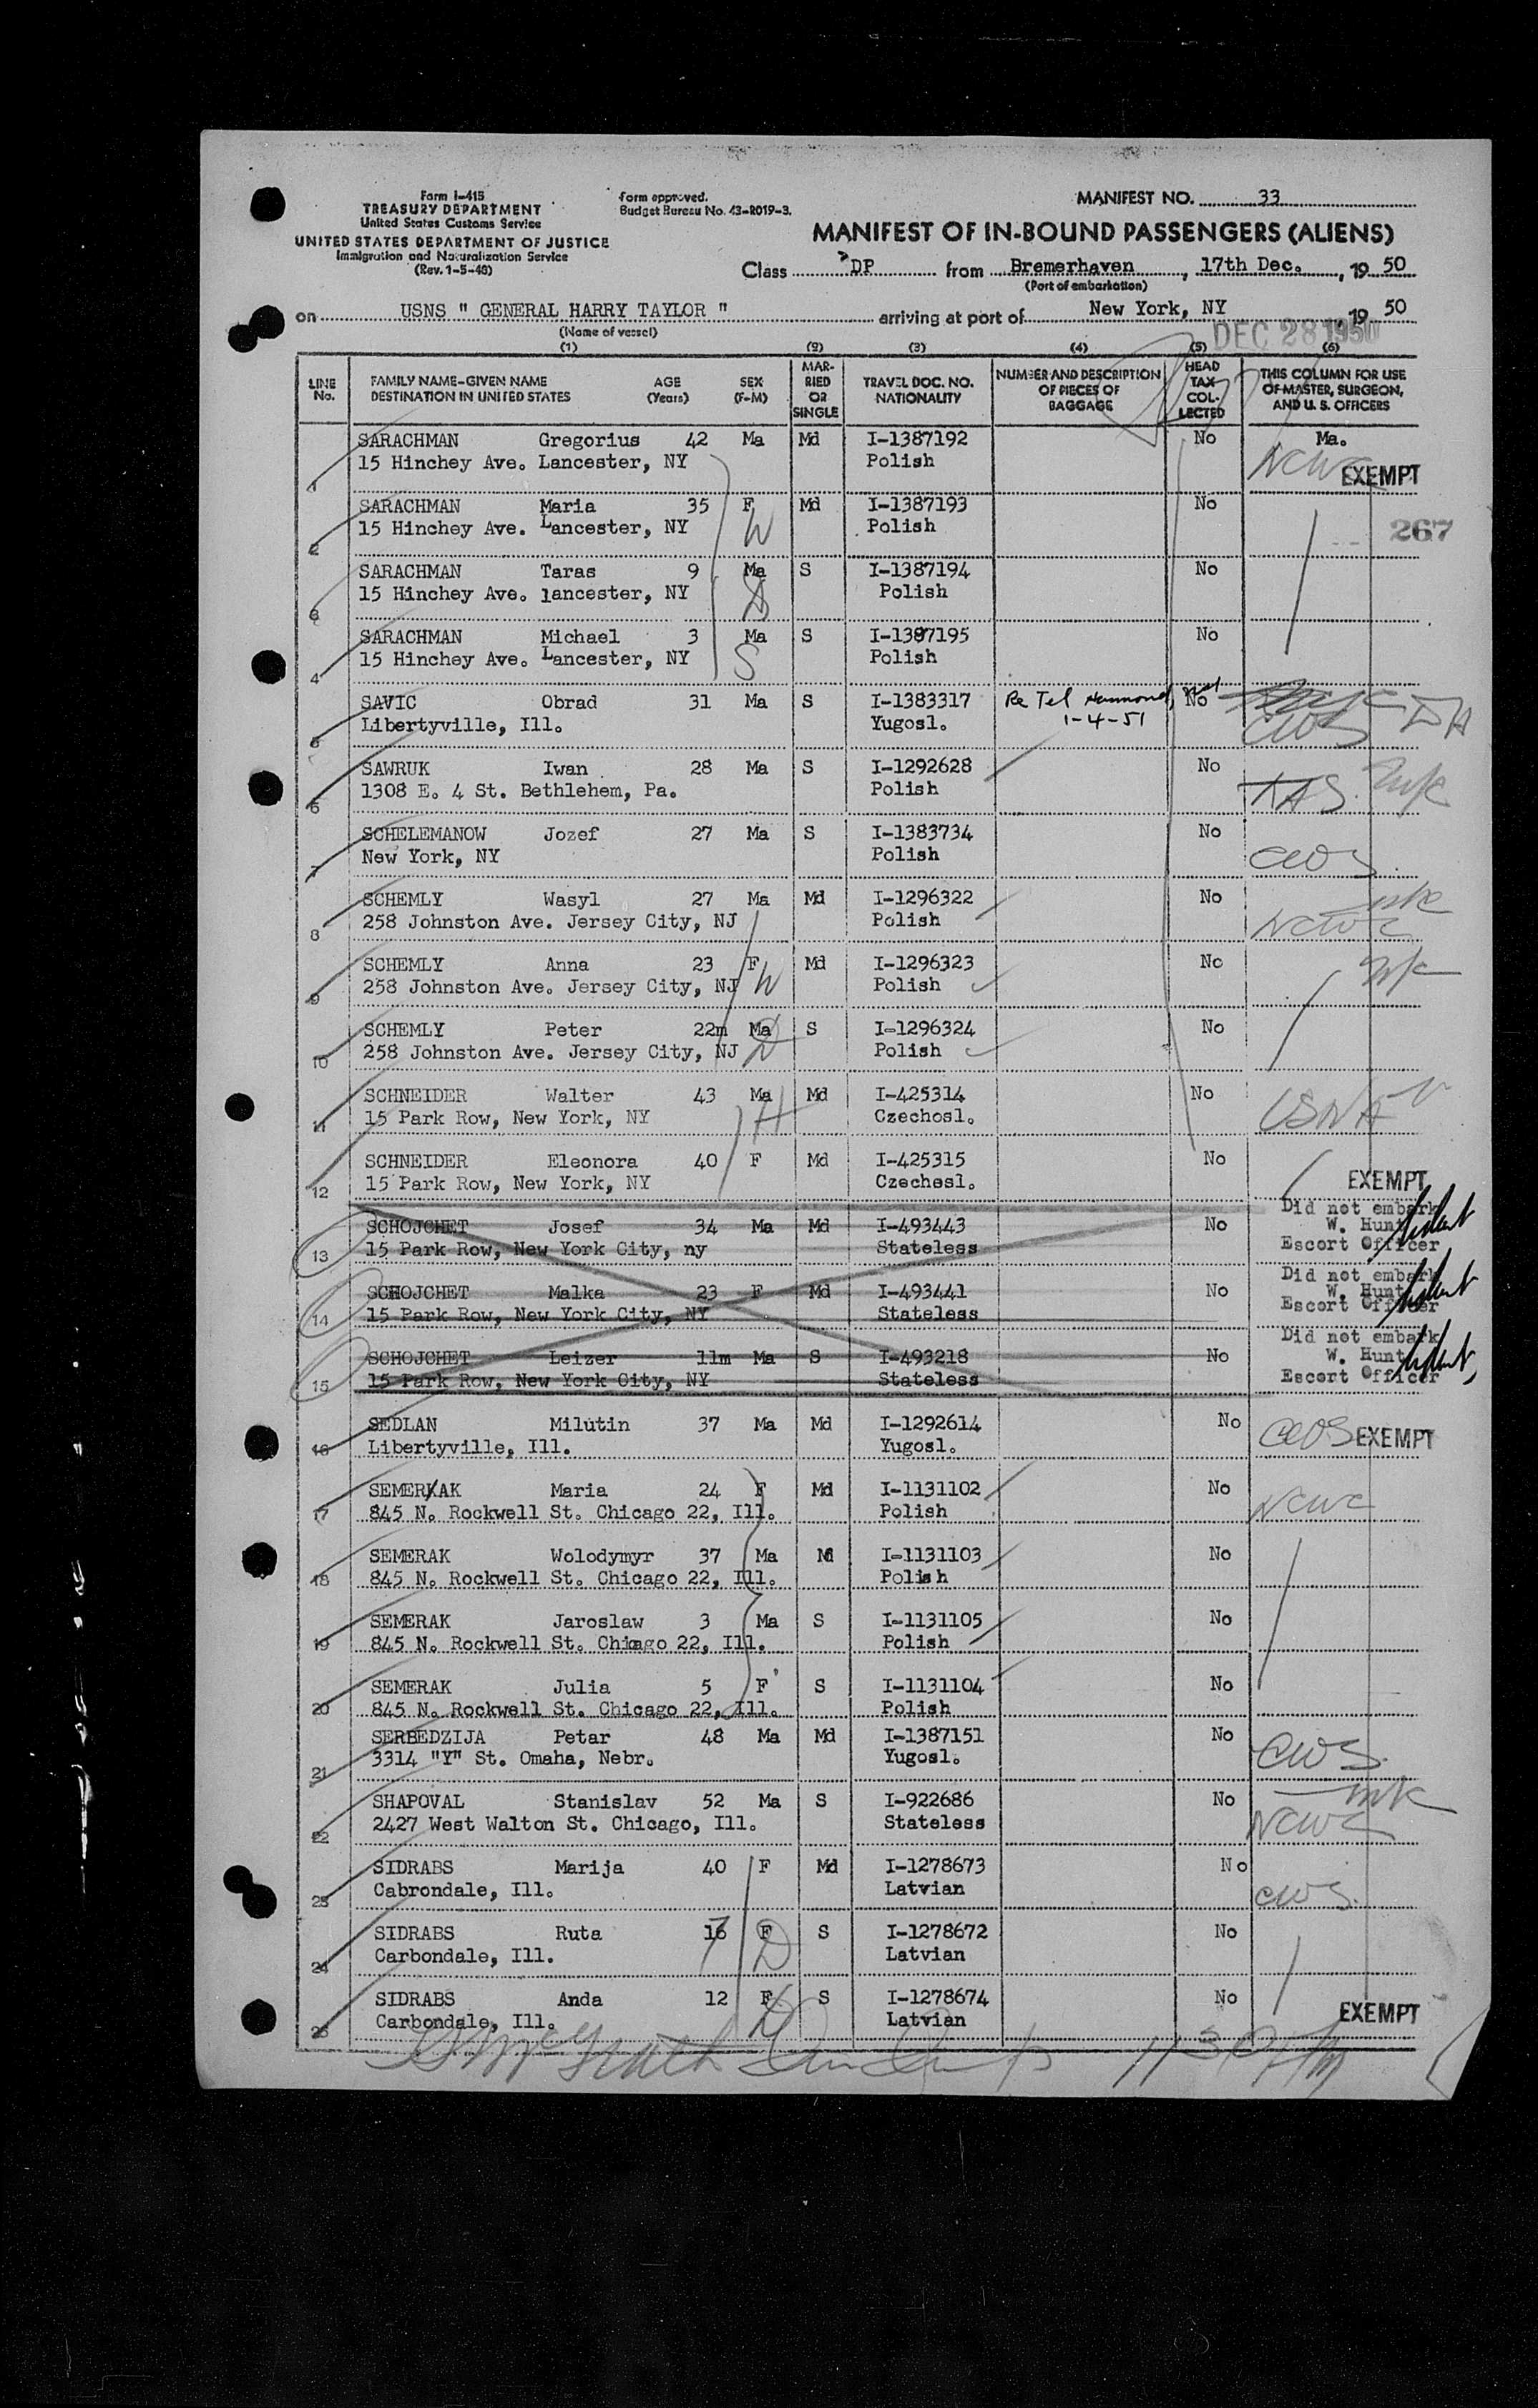 Form I-415
TREASURY DEPARTMENT
United States Customs Service
UNITED STATES DEPARTMENT OF JUSTICE
Immigration and Naturalization Service
(Rev. 1-5-48)
Form approved.
Budget Bureau No. 43-R019-3.
MANIFEST NO. 33
MANIFEST OF IN-BOUND PASSENGERS (ALIENS)
Class DP from Bremerhaven, 17th Dec., 19 50
(Port of embarkation)
on USNS " GENERAL HARRY TAYLOR " arriving at port of New York, NY, 19 50
(Name of vessel)
DEC 28 1950
(1) (2) (3) (4) (5) (6)
LINE No. FAMILY NAME-GIVEN NAME DESTINATION IN UNITED STATES AGE (Years) SEX (F-M) MARRIED OR SINGLE TRAVEL DOC. NO. NATIONALITY NUMBER AND DESCRIPTION OF PIECES OF BAGGAGE HEAD TAX COLLECTED THIS COLUMN FOR USE OF MASTER, SURGEON, AND U. S. OFFICERS
SARACHMAN Gregorius 42 Ma Md I-1387192 No Ma.
1 15 Hinchey Ave. Lancester, NY Polish NCWC EXEMPT
SARACHMAN Maria 35 F Md I-1387193 No
2 15 Hinchey Ave. Lancester, NY W Polish 267
SARACHMAN Taras 9 Ma S I-1387194 No
3 15 Hinchey Ave. lancester, NY Polish
SARACHMAN Michael 3 Ma S I-1387195 No
4 15 Hinchey Ave. Lancester, NY S Polish
SAVIC Obrad 31 Ma S I-1383317 Re Tel Hammond, No
5 Libertyville, Ill. Yugosl. 1-4-51 CWS
SAWRUK Iwan 28 Ma S I-1292628 No
6 1308 E. 4 St. Bethlehem, Pa. Polish
SCHELEMANOW Jozef 27 Ma S I-1383734 No
7 New York, NY Polish CWS
SCHEMLY Wasyl 27 Ma Md I-1296322 No
8 258 Johnston Ave. Jersey City, NJ Polish NCWC
SCHEMLY Anna 23 F Md I-1296323 No
9 258 Johnston Ave. Jersey City, NJ W Polish
SCHEMLY Peter 22m Ma S I-1296324 No
10 258 Johnston Ave. Jersey City, NJ Polish
SCHNEIDER Walter 43 Ma Md I-425314 No
11 15 Park Row, New York, NY H Czechosl. USNA
SCHNEIDER Eleonora 40 F Md I-425315 No
12 15 Park Row, New York, NY Czechesl. EXEMPT
SCHOJCHET Josef 34 Ma Md I-493443 No Did not embark
13 15 Park Row, New York City, ny Stateless W. Hunt Escort Officer
SCHOJCHET Malka 23 F Md I-493441 No Did not embark
14 15 Park Row, New York City, NY Stateless W. Hunt Escort Officer
SCHOJCHET Leizer 11m Ma S I-493218 No Did not embark
15 15 Park Row, New York City, NY Stateless W. Hunt Escort Officer
SEDLAN Milutin 37 Ma Md I-1292614 No
16 Libertyville, Ill. Yugosl. CWS EXEMPT
SEMERAK Maria 24 F Md I-1131102 No
17 845 N. Rockwell St. Chicago 22, Ill. Polish NCWC
SEMERAK Wolodymyr 37 Ma M I-1131103 No
18 845 N. Rockwell St. Chicago 22, Ill. Polish
SEMERAK Jaroslaw 3 Ma S I-1131105 No
19 845 N. Rockwell St. Chicago 22, Ill. Polish
SEMERAK Julia 5 F S I-1131104 No
20 845 N. Rockwell St. Chicago 22, Ill. Polish
SERBEDZIJA Petar 48 Ma Md I-1387151 No
21 3314 "Y" St. Omaha, Nebr. Yugosl. CWS
SHAPOVAL Stanislav 52 Ma S I-922686 No
22 2427 West Walton St. Chicago, Ill. Stateless NCWC
SIDRABS Marija 40 F Md I-1278673 No
23 Cabrondale, Ill. Latvian CWS.
SIDRABS Ruta 16 F S I-1278672 No
24 Carbondale, Ill. 7 D Latvian
SIDRABS Anda 12 F S I-1278674 No
25 Carbondale, Ill. D Latvian EXEMPT